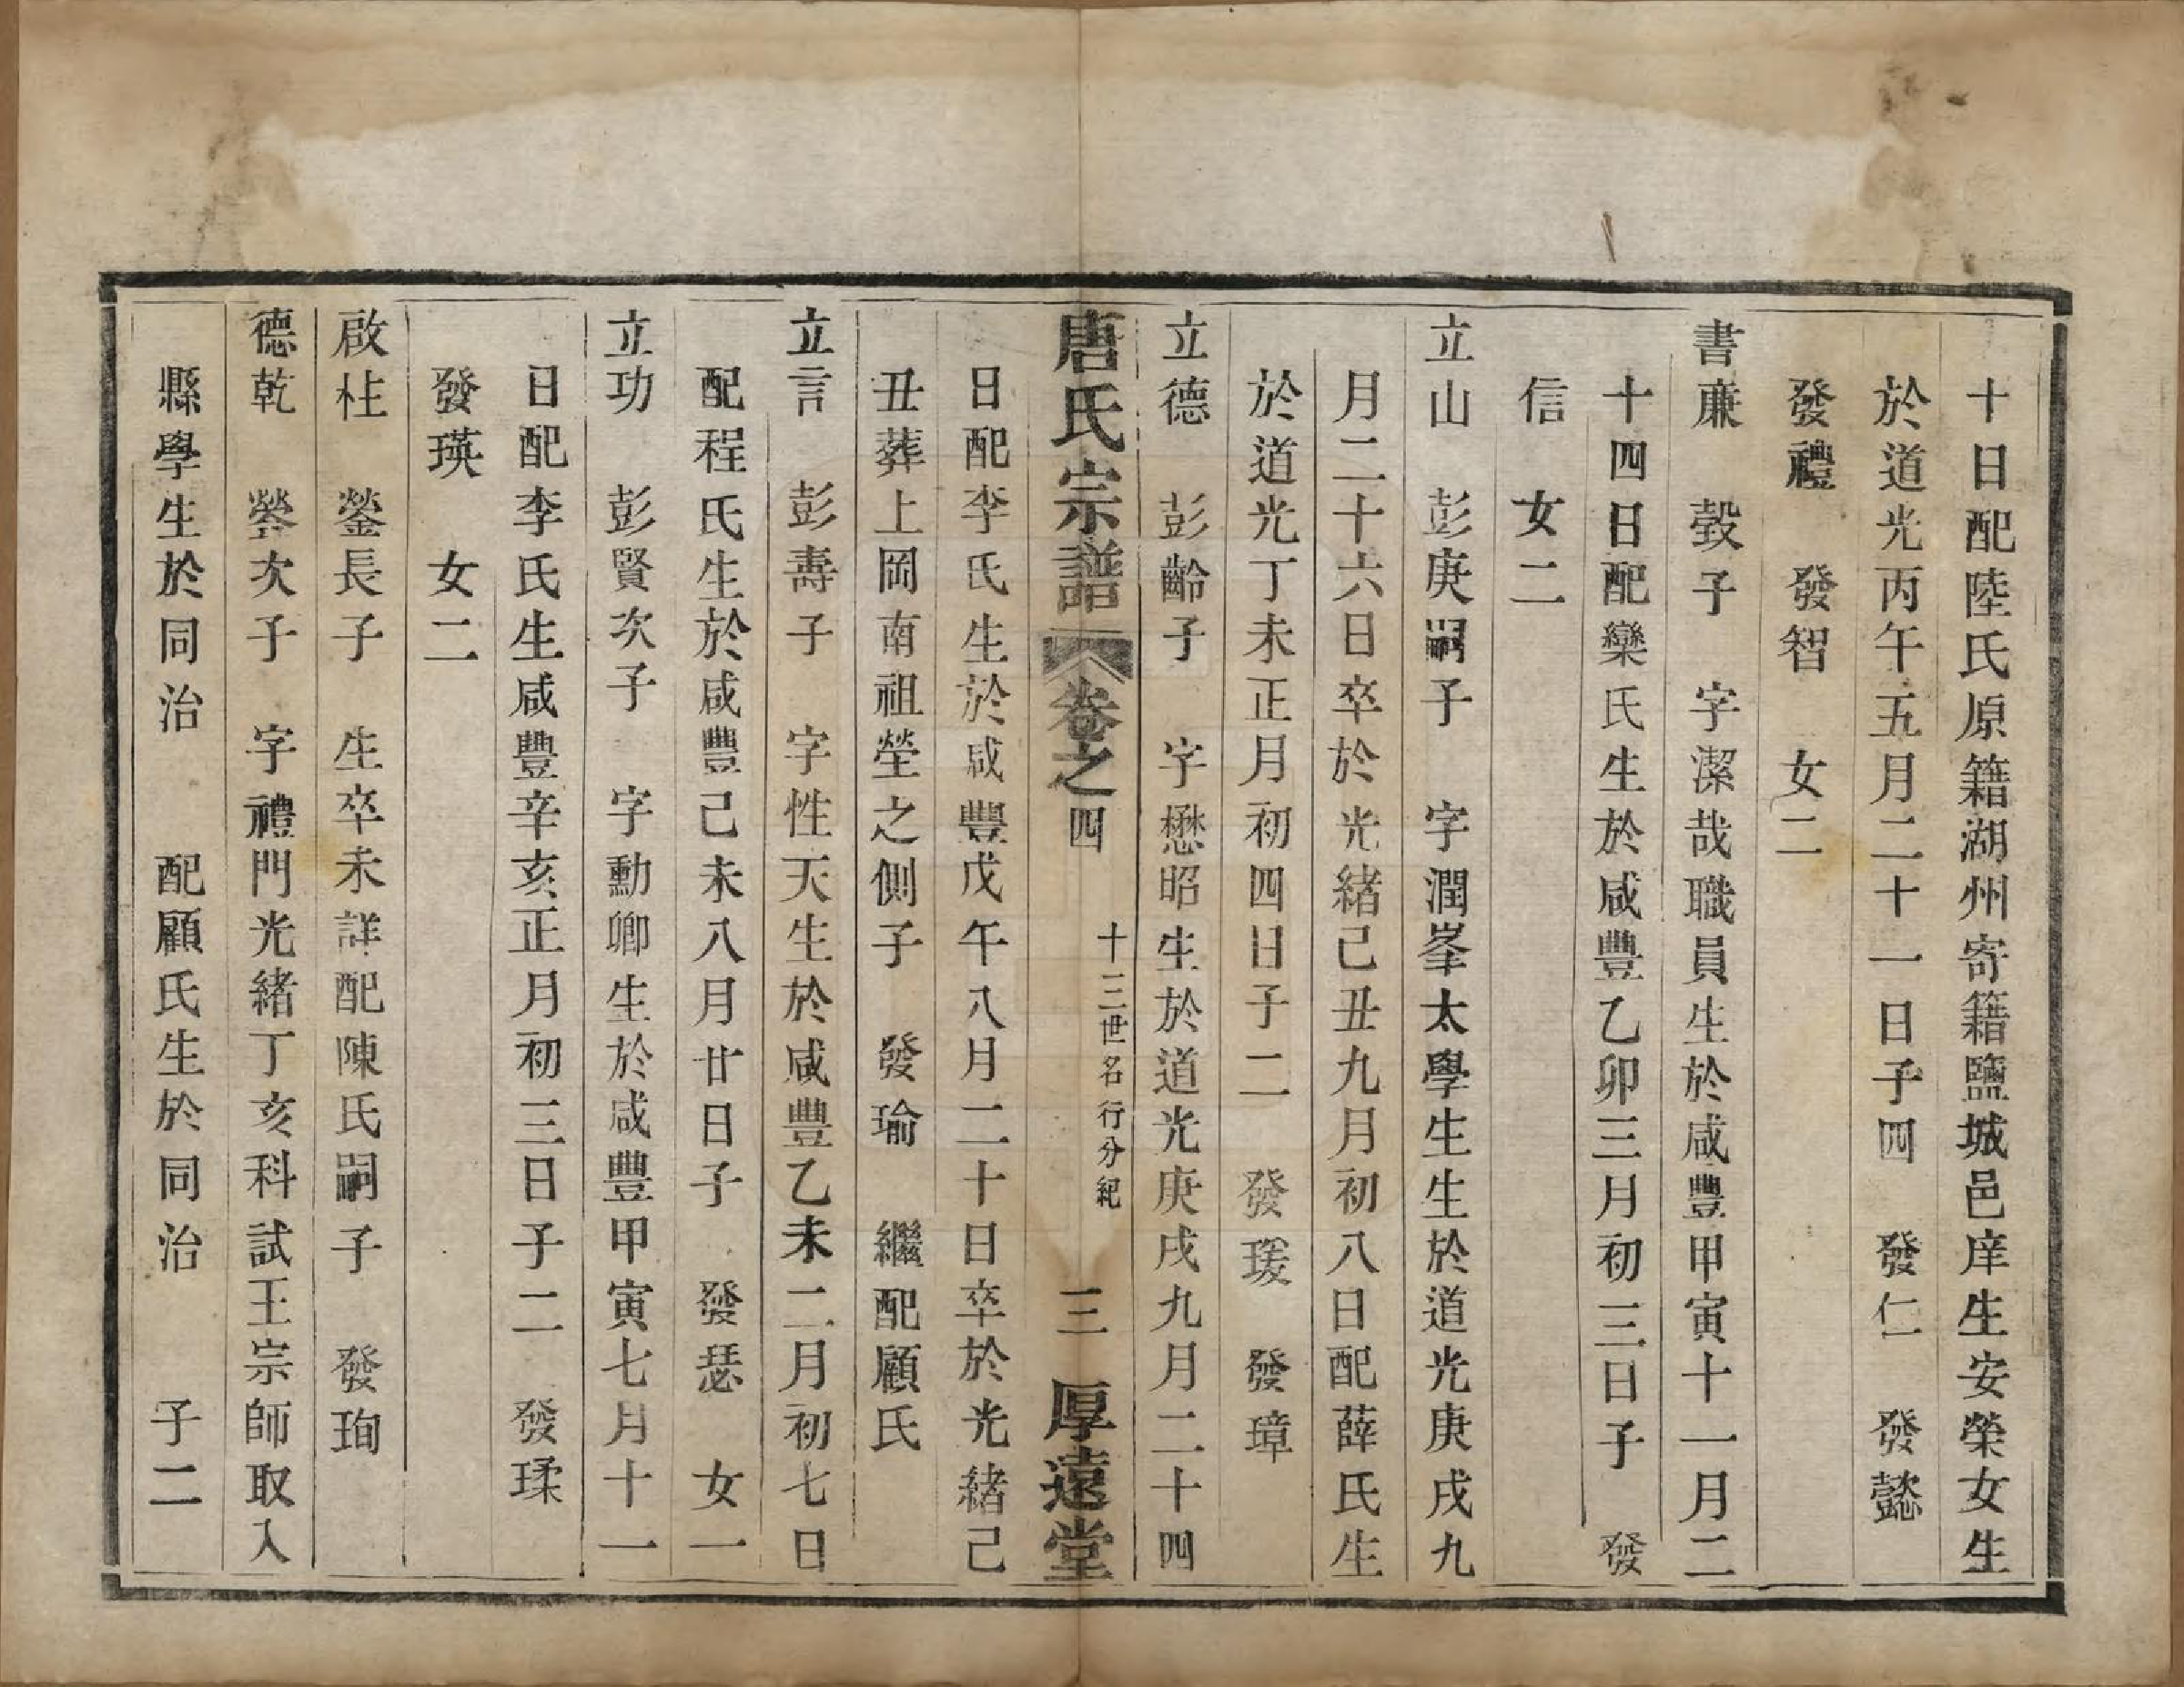 十日配陸氏原籍湖州寄籍鹽城邑庠生安榮女生
於道光丙午五月二十一日子四　發仁　發懿
發禮　發智　女二
書亷　㲉子　字潔哉職員生於咸豐甲寅十一月二
十四日配欒氏生於咸豐乙卯三月初三日子　發
信　女二
立山　彭庚嗣子　字潤峯太學生生於道光庚戌九
月二十六日卒於光緒己丑九月初八日配薛氏生
於道光丁未正月初四日子二　發瑗　發璋
立德　彭齡子　字懋昭生於道光庚戌九月二十四
唐氏宗譜　卷之四　十三世名行分紀　三　厚遠堂
日配李氏生於咸豐戊午八月二十日卒於光緒己
丑葬上岡南祖塋之側子　發瑜　繼配顧氏
立言　彭壽子　字性天生於咸豐乙未二月初七日
配程氏生於咸豐己未八月廿日子　發瑟　女一
立功　彭賢次子　字勳卿生於咸豐甲寅七月十一
日配李氏生咸豐辛亥正月初三日子二　發瑈
發瑛　女二
啟柱　鎣長子　生卒未詳配陳氏嗣子　發珣
德乾　鎣次子　字禮門光緒丁亥科試王宗師取入
縣學生於同治　配顧氏生於同治　子二